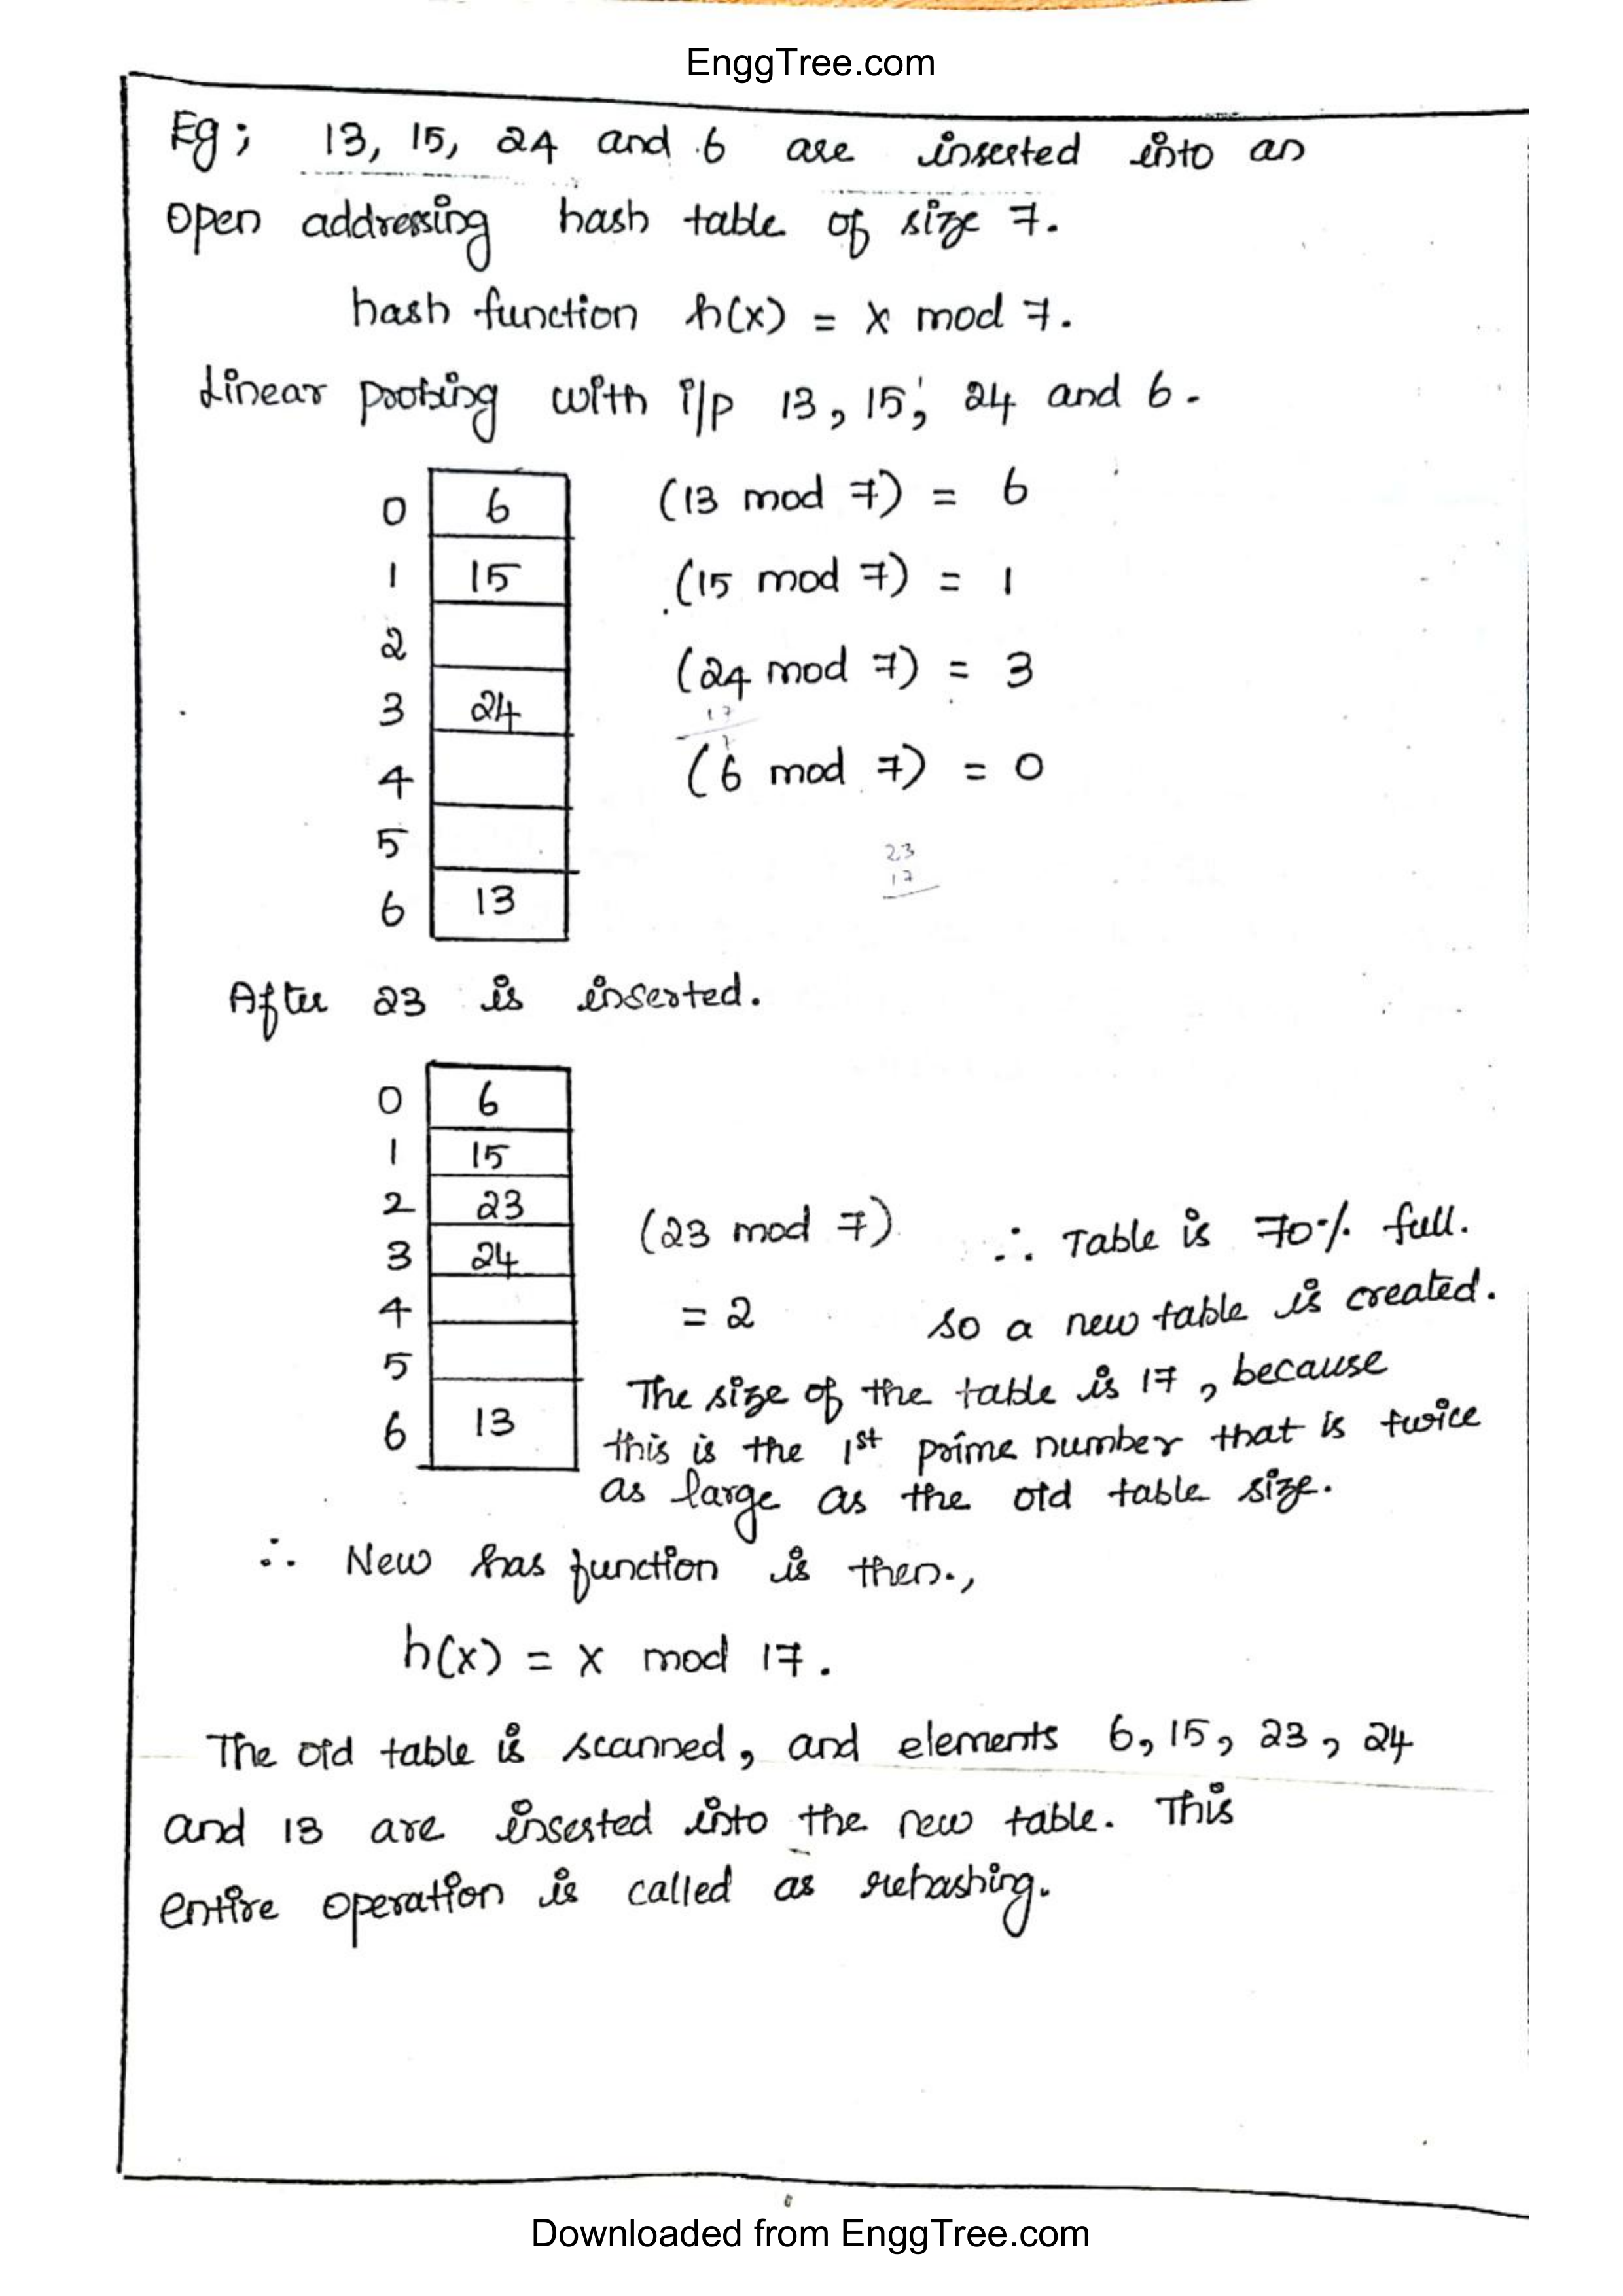 EnggTree.com
Eg; 13, 15, 24 and 6 are inserted into an
open addressing hash table of size 7.
hash function h(x) = x mod 7.
Linear probing with i/p 13, 15, 24 and 6.
0 6 (13 mod 7) = 6
1 15 (15 mod 7) = 1
2
3 24 (24 mod 7) = 3
17
7
4 (6 mod 7) = 0
5
23
17
6 13
After 23 is inserted.
0 6
1 15
2 23 (23 mod 7) ∴ Table is 70% full.
3 24
4 = 2 so a new table is created.
5 The size of the table is 17, because
6 13 this is the 1st prime number that is twice
as large as the old table size.
∴ New has function is then.,
h(x) = x mod 17.
The old table is scanned, and elements 6, 15, 23, 24
and 13 are inserted into the new table. This
entire operation is called as rehashing.
Downloaded from EnggTree.com